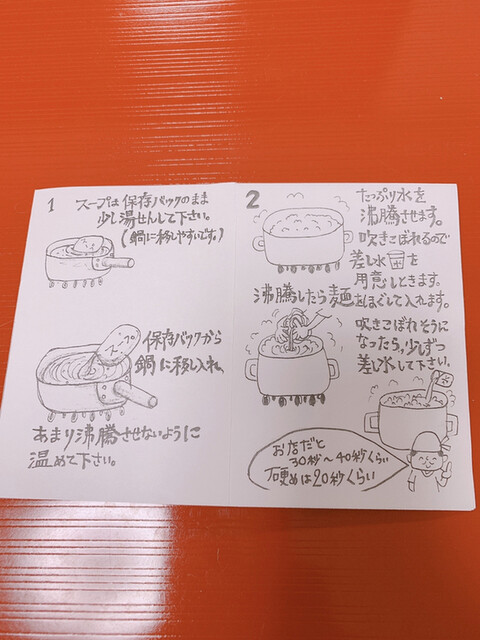 1
スープは保存パックのまま
少し湯せんして下さい。
(鍋に移しやすいです。)
保存パックから
鍋に移し入れ、
あまり沸騰させないように
温めて下さい。
2
たっぷり水を
沸騰させます。
吹きこぼれるので
差し水を
用意しときます。
沸騰したら麺をほぐして入れます。
吹きこぼれそうに
なったら,少しずつ
差し水して下さい。
お店だと
30秒〜40秒くらい
硬めは20秒くらい